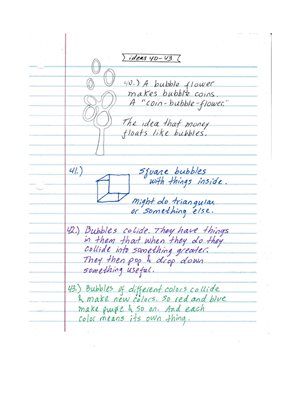 ideas 40-43
40.) A bubble flower
makes bubble coins.
A "coin-bubble-flower"
The idea that money
floats like bubbles.
41.) Square bubbles
with things inside.
might do triangular
or something else.
42.) Bubbles collide. They have things
in them that when they do they
collide into something greater.
They then pop & drop down
something useful.
43.) Bubbles of different colors collide
& make new colors. So red and blue
make purple & so on. And each
color means its own thing.